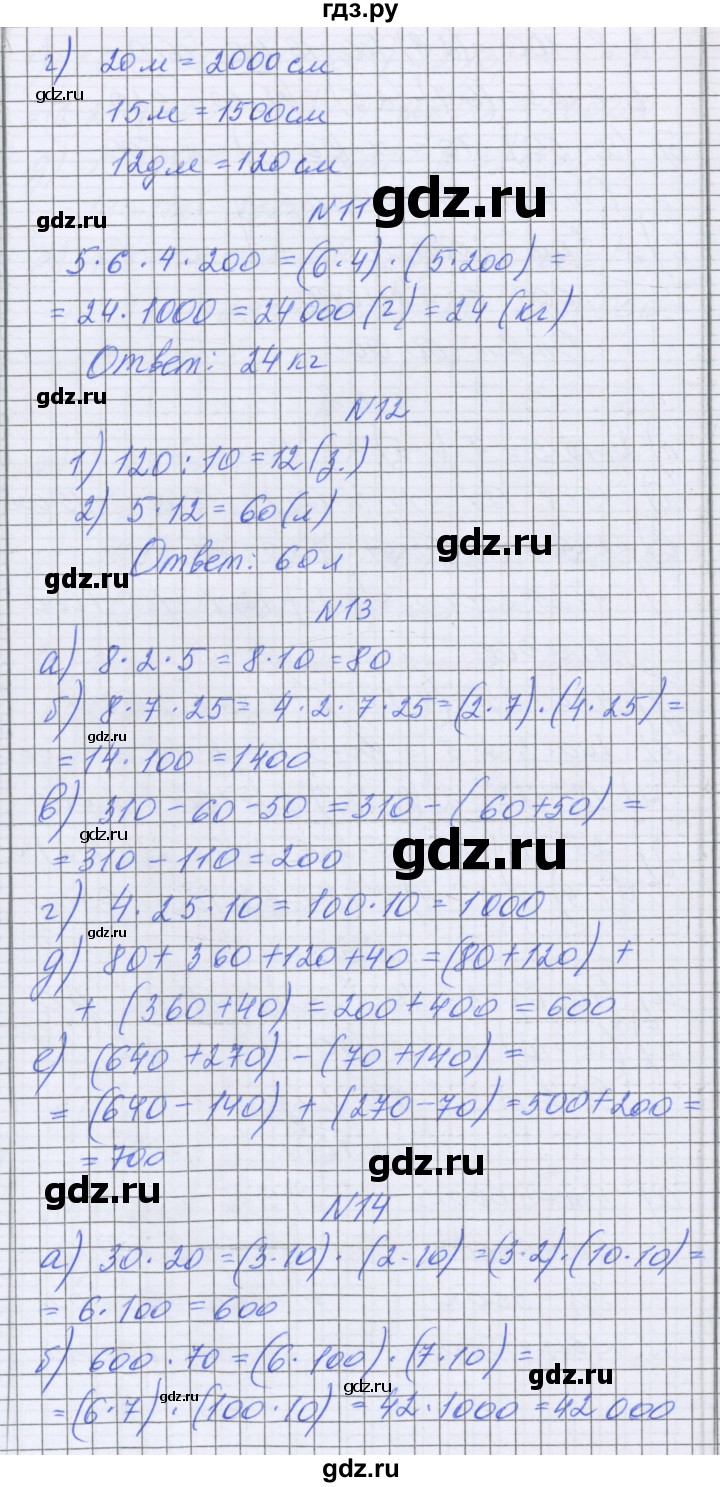 гдз.ру
г) 20 м = 2000 см
gdz.ru
15 м = 1500 см
12 дм = 120 см
gdz.ru
gdz.ru
N11
5 · 6 · 4 · 200 = (6 · 4) · (5 · 200) =
= 24 · 1000 = 24 000 (г) = 24 (кг)
Ответ: 24 кг
gdz.ru
N12
1) 120 : 10 = 12 (з.)
2) 5 · 12 = 60 (л)
Ответ: 60 л
gdz.ru
gdz.ru
N13
а) 8 · 2 · 5 = 8 · 10 = 80
б) 8 · 7 · 25 = 4 · 2 · 7 · 25 = (2 · 7) · (4 · 25) =
gdz.ru
= 14 · 100 = 1400
в) 310 - 60 - 50 = 310 - (60 + 50) =
gdz.ru
= 310 - 110 = 200
gdz.ru
г) 4 · 25 · 10 = 100 · 10 = 1000
gdz.ru
д) 80 + 360 + 120 + 40 = (80 + 120) +
+ (360 + 40) = 200 + 400 = 600
е) (640 + 270) - (70 + 140) =
= (640 - 140) + (270 - 70) = 500 + 200 =
= 700
gdz.ru
gdz.ru
N14
а) 30 · 20 = (3 · 10) · (2 · 10) = (3 · 2) · (10 · 10) =
= 6 · 100 = 600
б) 600 · 70 = (6 · 100) · (7 · 10) =
gdz.ru
gdz.ru
gdz.ru
= (6 · 7) · (100 · 10) = 42 · 1000 = 42 000
gdz.ru